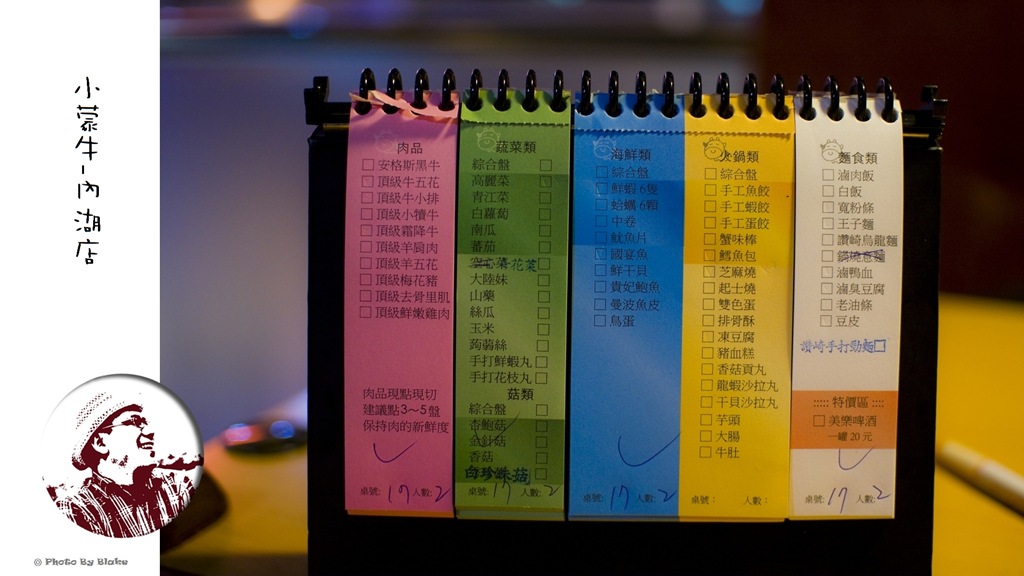 小蒙牛-內湖店
肉品
□ 安格斯黑牛
□ 頂級牛五花
□ 頂級牛小排
□ 頂級小犢牛
□ 頂級霜降牛
□ 頂級羊肩肉
□ 頂級羊五花
□ 頂級梅花豬
□ 頂級去骨里肌
□ 頂級鮮嫩雞肉
肉品現點現切
建議點3~5盤
保持肉的新鮮度
桌號: 17 人數: 2
蔬菜類
綜合盤 □
高麗菜 □
青江菜 □
白蘿蔔 □
南瓜 □
蕃茄 □
空心菜 花菜 □
大陸妹 □
山藥 □
絲瓜 □
玉米 □
蒟蒻絲 □
手打鮮蝦丸 □
手打花枝丸 □
菇類
綜合盤 □
杏鮑菇 □
金針菇 □
香菇 □
白珍珠菇 □
桌號: 17 人數: 2
海鮮類
□ 綜合盤
□ 鮮蝦 6隻
□ 蛤蠣 6顆
□ 中卷
□ 魷魚片
□ 國宴魚
□ 鮮干貝
□ 貴妃鮑魚
□ 曼波魚皮
□ 鳥蛋
桌號: 17 人數: 2
火鍋類
□ 綜合盤
□ 手工魚餃
□ 手工蝦餃
□ 手工蛋餃
□ 蟹味棒
□ 鱈魚包
□ 芝麻燒
□ 起士燒
□ 雙色蛋
□ 排骨酥
□ 凍豆腐
□ 豬血糕
□ 香菇貢丸
□ 龍蝦沙拉丸
□ 干貝沙拉丸
□ 芋頭
□ 大腸
□ 牛肚
桌號: 人數:
麵食類
□ 滷肉飯
□ 白飯
□ 寬粉條
□ 王子麵
□ 讚崎烏龍麵
□ 鍋燒意麵
□ 滷鴨血
□ 滷臭豆腐
□ 老油條
□ 豆皮
讚崎手打勁麵□
::::: 特價區 ::::
□ 美樂啤酒
一罐 20 元
桌號: 17 人數: 2
© Photo By Blake